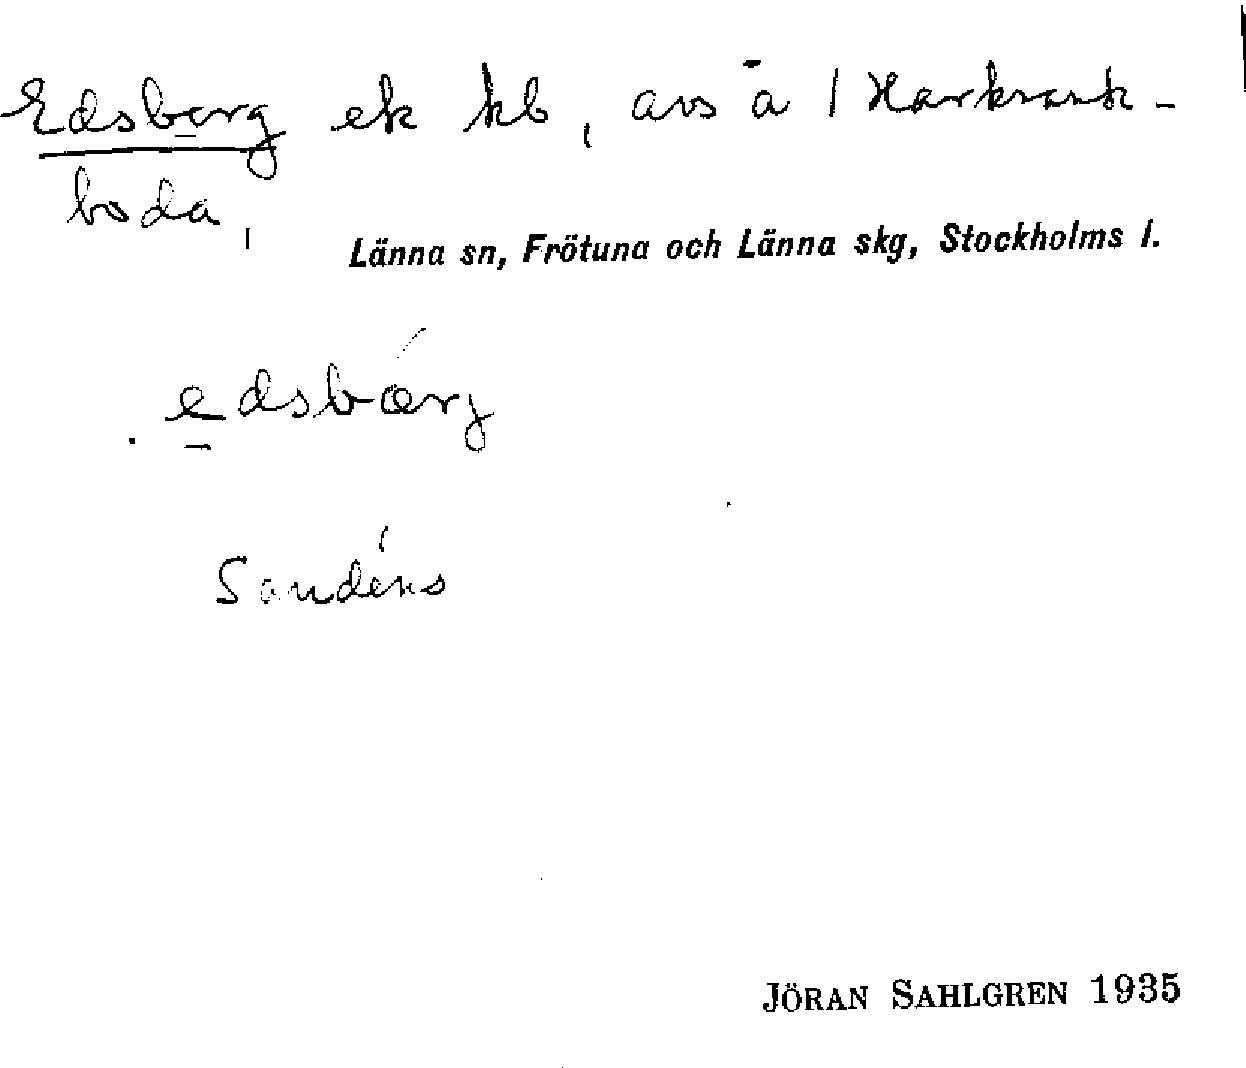 Edsberg ek kb, avs å 1 Harkrank-
boda,
Länna sn, Frötuna och Länna skg, Stockholms l.
edsbærj
Sandéns
JÖRAN SAHLGREN 1935